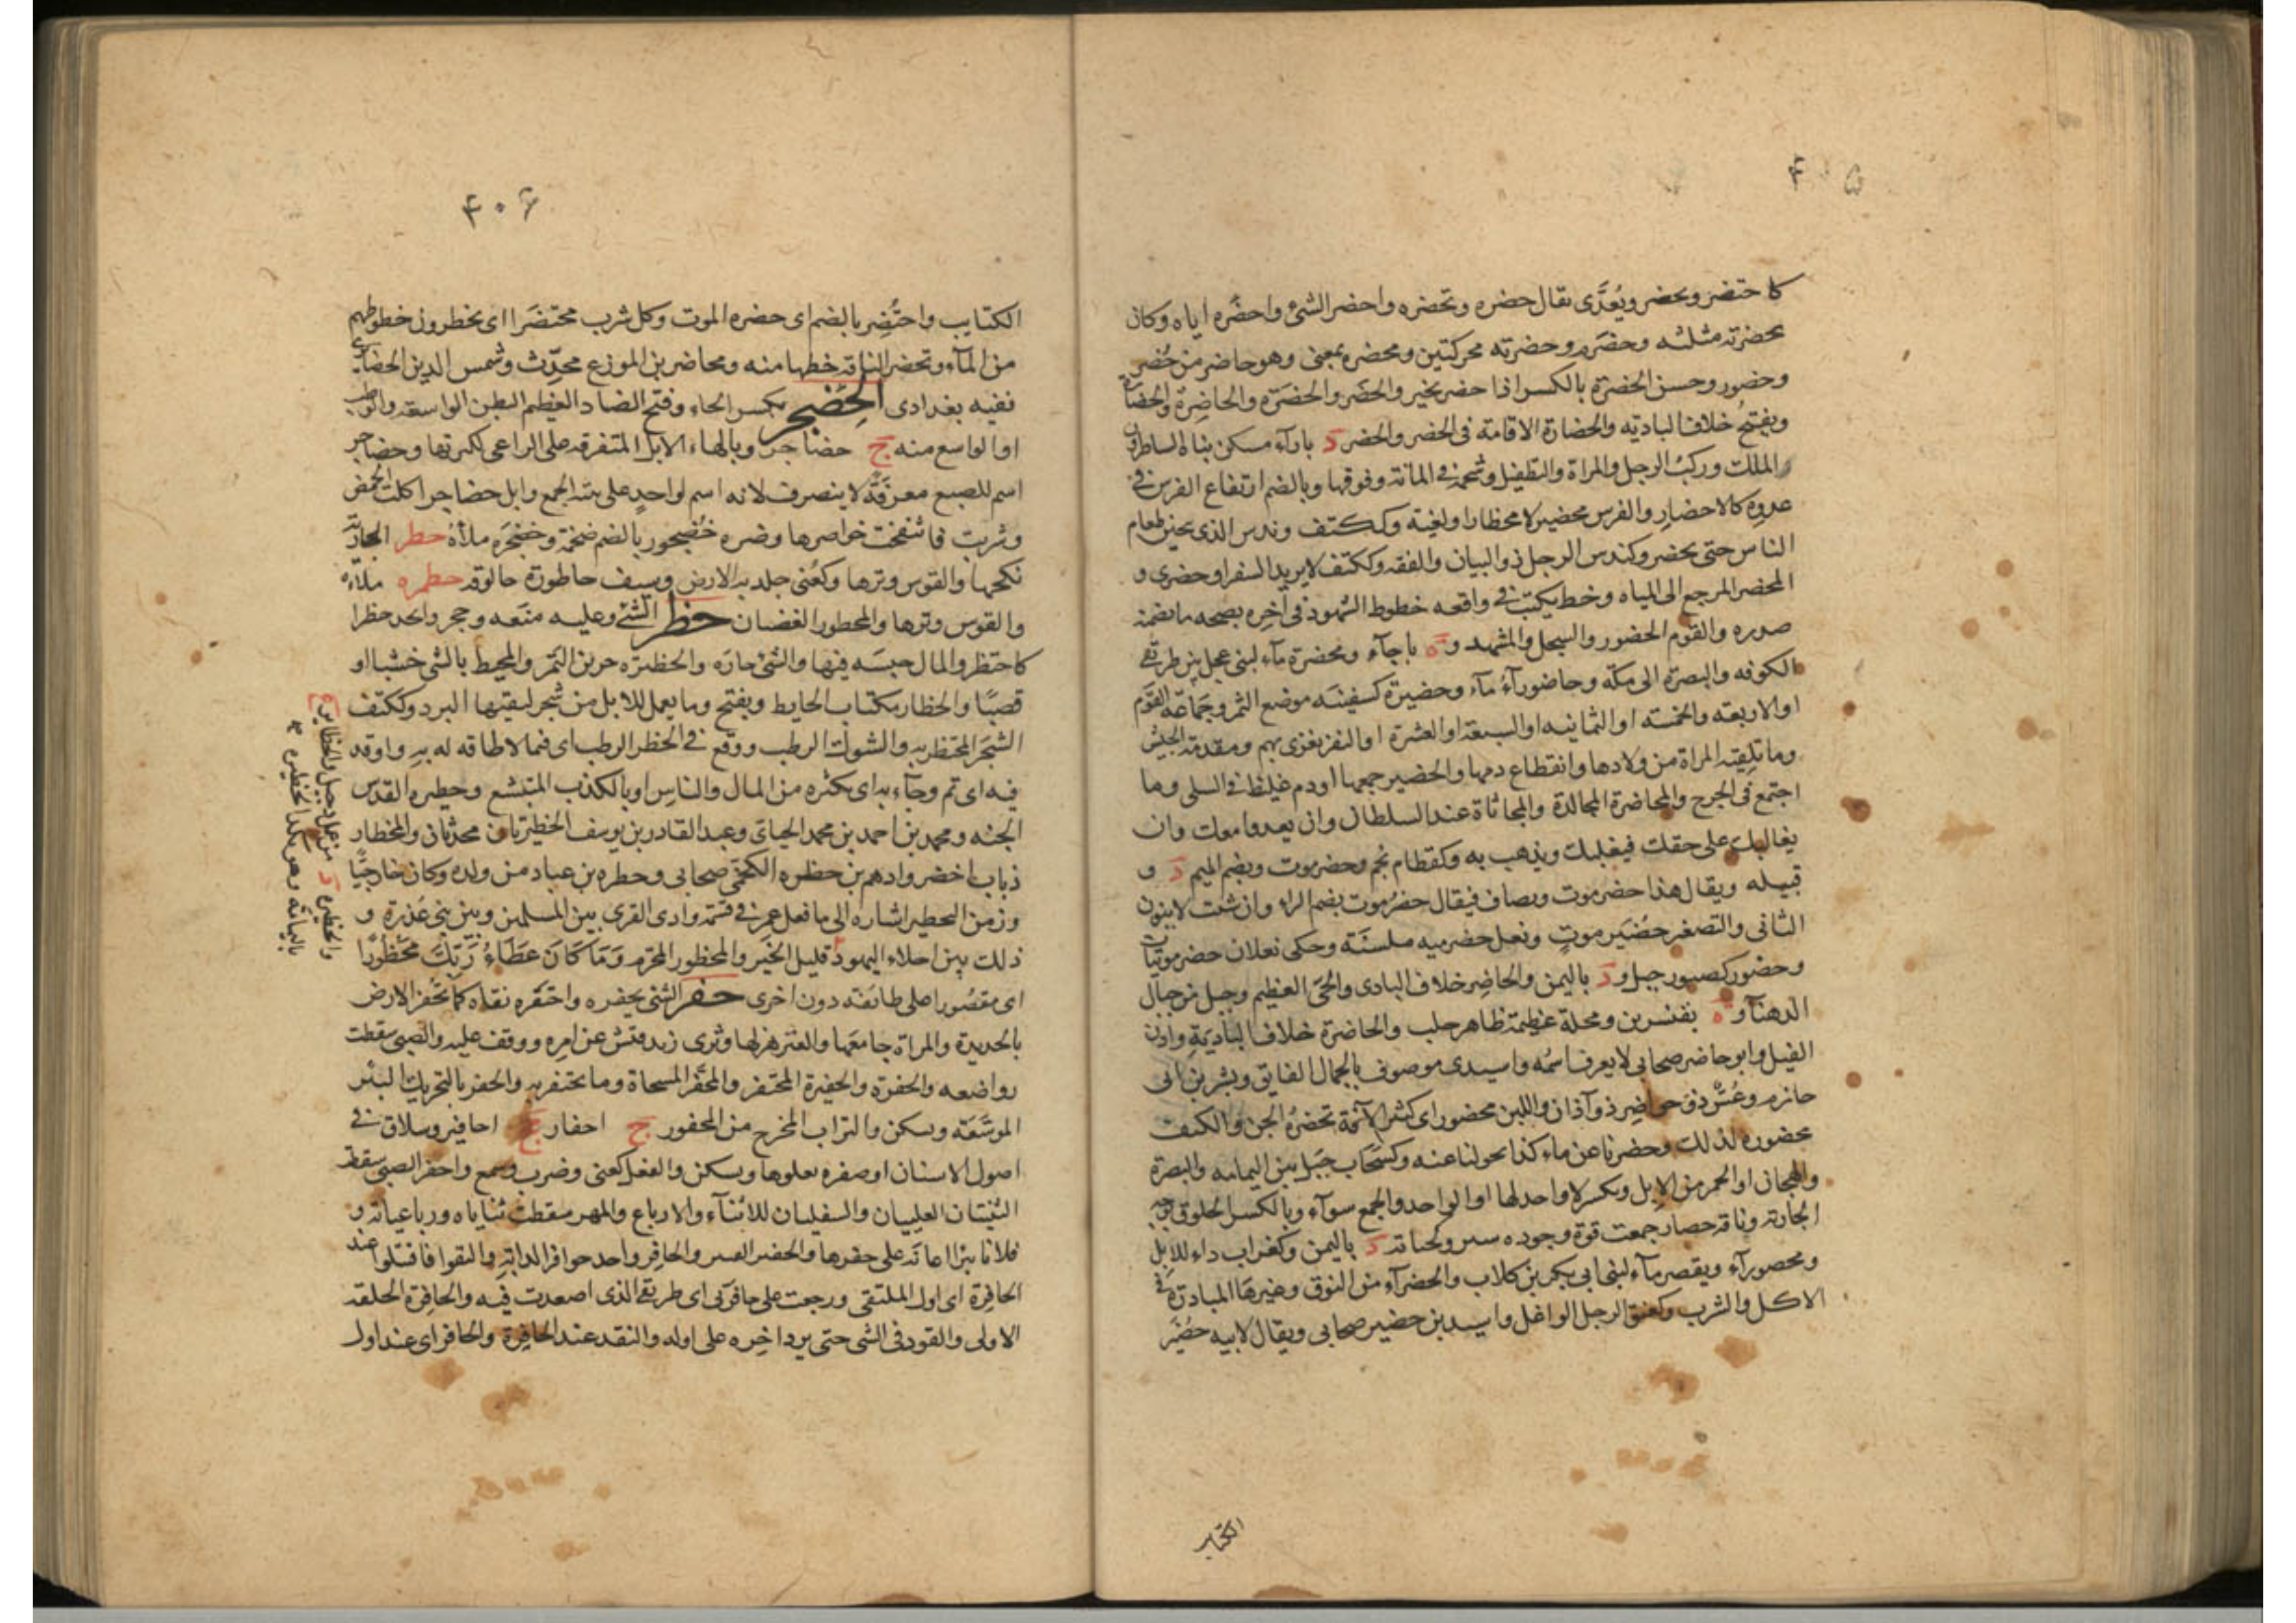 ۴۰۵
كاحتضر وتحضر ويُعَدَّى يقال حضره وتحضره واحضر الشئ واحضَره اياه وكان
بحضرته مثلثه وحضَره وحضرته محركتين ومحضره بمعنى وهو حاضر من حُضر
وحضور وحسن الحضرة بالكسر اذا حضر بخير والحضَر والحضَرَة والحاضِرة والحضَارة
ويفتحُ خلاف الباديته والحضارة الاقامة فى الحضر والحضر د بازآء مسكن بناه الساطرون
الملك وركبُ الرجل والمراة والتطفيل وشحمة فى المانة وفوقها وبالضم ارتفاع الفرس فى
عدوه كالاحضار والفرس محضير لا محظارا ولغية وككتف وندس الذى يحين طعام
الناس حتى يحضر وكندس الرجل ذو البيان والفقه وككتف لا يريد السفر او حضرى و
المحضر المرجع الى المياه وخط يكتب فى واقعه خطوط الشهود فى آخره بصحه ما تضمنه
صدره والقوم الحضور والسجل والمشهد و ة باجآء ومحضرة مآء لبنى عجل بين طريقى
الكوفه والبصرة الى مكة وحاضورآءُ مآء وحضيرة كسفينَه موضع التمر وجَمَاعَة القوم
او الاربعته والخمسته او الثمانيه او السبعة او العشرة او النفر يغزى بهم ومقدمة الجيش
وما تلقيته المراة من ولادها وانقطاع دمها والحضير جمعها او دم غليظ فى السلى وما
اجتمع فى الجرح والمحاضرة المجالدة والمجاثاة عند السلطان وان يعدوا معك وان
يغالبك على حقك فيغلبك ويذهب به وكقطام نجم وحضرموت وبضم الميم د و
قبيله ويقال هذا حضرموت ويضاف فيقال حضرُموت بضم الراء وان شئت لا ينون
الثانى والتصغير حضُيَر موتٍ ونعل حضرميه ملسنَة وحكى نعلان حضرموتيتان
وحضور كصبور جبل و د باليمن والحاضِر خلاف البادى والحَى العظيم وجبل من جبال
الدهنآء و ة بقنسرين ومحلة عظيمة ظاهر حلب والحاضرة خلاف الباديَةِ واذن
الفيل وابو حاضر صحابى لا يعرف اسمُه واسيدى موصوف بالجمال الفايق وبشر بن ابى
حازم وعُسٌّ ذو حواضِر ذو آذان واللبن محضور اى كثير الآفة تحضرُه الجن والكنف
محضوره لذلك وحضرنا عن ماء كذا تحولنا عنه وكسَحَاب جَبَل بين اليمامه والبصرة
والهجانى او الحمر من الابل وبكسر لا واحد لها او الواحد والجمع سوآء وبالكسر الخلوق بوجه
الجارته وناقة حضار جمعت قوة وجوده سير وكجبانة د باليمن وكغراب داء للابل
ومحضورآء ويقصر مآء لبنى ابى بكر بن كلاب والحضرآء من النوق وغيرها المبادرة فى
الاكل والشرب وكعنق الرجل الواغل واسيد بن حضير صحابى ويقال لابيه حضُيَر
الكتايب
۴۰۶
الكتايب واحتُضِر بالضم اى حضره الموت وكل شرب محتضَرا اى يحظرون خطوطهم
من المآء وتحضر الناقة خطها منه ومحاضر بن المورع محدّث وشمس الدين الحضايرى
فقيه بغدادى الحِضَجر بكسر الحاء وفتح الضاد العظيم البطن الواسعة والوطب
او الواسع منه ج حضاجر وبالهاء الابل المتفرقة على الراعى لكثرتها وحضاجر
اسم للضبع معرفَةً لا ينصرف لانه اسم لواحدٍ على بنية الجمع وابل حضاجر اكلت الحمض
وشربت فانتفخت خواصرها وضره خُضجور بالضم ضخمة وخضجَره ملأه حطر الجارية
نكحها والقوس وترها وكعُنى جلد به الارض وسيف حاطورة حالوقه حطمره ملأه
والقوس وترها والمحطور الغضبان حظر الشئ وعليه منَعه وحجر واتخد حظرا
كاحتظر والمال حبسَه فيها والشئ حازَه والحظيرَه جرين التمر والمحيط بالشى خشبا او
قصبًا والحظار ككتاب الحايط ويفتح وما يعمل للابل من شجر ليقيها البرد وككتف
الشجَر المحتظر به والشوك الرطب ووقع فى الحظر الرطب اى فيما لا طاقة له به واوقد
فيه اى نم وجآء به اى بكثره من المال والناس او بالكذب المتبشع وحظيره القدس
الجنه ومحمد بن احمد بن محمد الحيانى وعبد القادر بن يوسف الحظيريان محدثان والمحظار
ذباب اخضر وادهم بن حظره اللخمى صحابى وحظره بن عباد من ولده وكان خارجيًّا
وزمن التحظير اشاره الى ما فعل عمر فى قسمة وادى القرى بين المسلمين وبين بنى عُذرة و
ذلك بين اجلاء اليهود قليل الخَير والمحظور المحرم وَمَا كَانَ عَطَاءُ رَبِّكَ مَحْظُورًا
اى مقصُورا على طائفته دون اخرى حفر الشئ يحفره واحتفَره نقاه كما تُحفَر الارض
بالحديدة والمراة جامعَها والعنز هزلها وثرى زيد فتش عن امره ووقف عليه والصبى سقطت
رواضعه والحفرة والحفيرة المحتفر والمحفَر المسحاة وما يحتفر به والحفر بالتحريك البئر
الموسَّعَه ويسكن والتراب المخرج من المحفور ج احفار جج احافير وسلاق فى
اصول الاسنان او صفره تعلوها ويسكن والفعل كعنى وضرب وسمع واحفر الصبى سقطت
الثنيتان العلييان والسفليان للاثنآء والارباع والمهر سقطت ثناياه ورباعياته و
فلانا بئرا اعانَه على حفرها والحضير القبر والحافِر واحد حوافر الدابه والتقوا فاقتلوا عند
الحافِرة اى اول الملتقى ورجعت على حافرتى اى طريقى الذى اصعدت فيه والحافِرة الخلقة
الاولى والقود فى الشى حتى يرد اخِره على اوله والنقد عند الحافِرة والحافر اى عند اول
والحظيرة د من عمل دجيل والحظاير ع
باليمامة وهو بكدا لحظيره